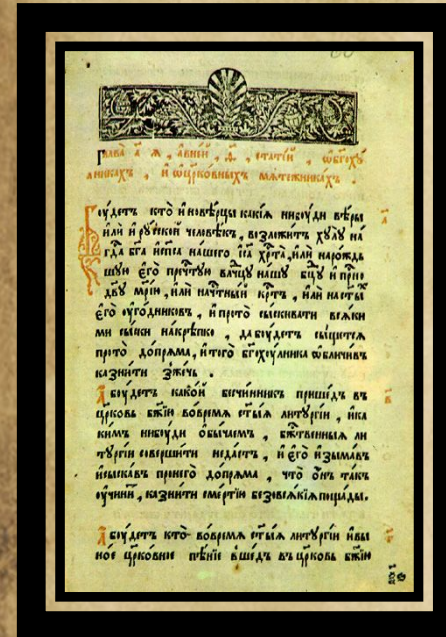 Глава̀ а҃ я , а в нєй , ѳ҃ , статїй , ѡбг҃охꙋл
никахъ , и ѡцр҃ковныхъ мѧтежникахъ .
Бꙋдетъ кто̀ иновѣрцы какїѧ нибꙋди вѣры
илѝ и рꙋской человѣкъ , возложитъ хꙋлꙋ на
гд҇а бг҃а и сп҃са нашего і҆с҃а хр҇та̀ , или нарождь
шꙋю є҆го̀ прч҇тꙋю влчцꙋ нашꙋ бц҃ꙋ и прно
дв҃ꙋ мр҃їю , или начтный крт҇ъ , или наст҃ыꙗ
є҆го̀ ᲂугодниковъ , и прото̀ сыскивати всѧки
ми сыски накрѣпко , да бꙋдетъ сыщетсѧ
прото̀ допрѧма , и того̀ бг҃охꙋлника ѡбличивъ
казнити зжечь .
А бꙋдетъ какой бесчинникъ пришєдъ въ
цр҃ковь бж҃їю вовремѧ ст҃ыꙗ литꙋргїи , и ка
кимъ нибꙋди ѻбычаемъ , бж҇твенныꙗ ли
тꙋргїи совершити недастъ , и є҆го̀ изымавъ
и сыскавъ пронего̀ допрѧма , что̀ ѻ҆нъ такъ
ᲂучинитъ , казнити смертїю безовсѧкїѧ пощады.
А бꙋдетъ кто̀ вовремѧ ст҃ыꙗ литꙋргїи и вы
ное цр҃ковное пѣнїе вшєдъ въ цр҃ковь бж҃їю